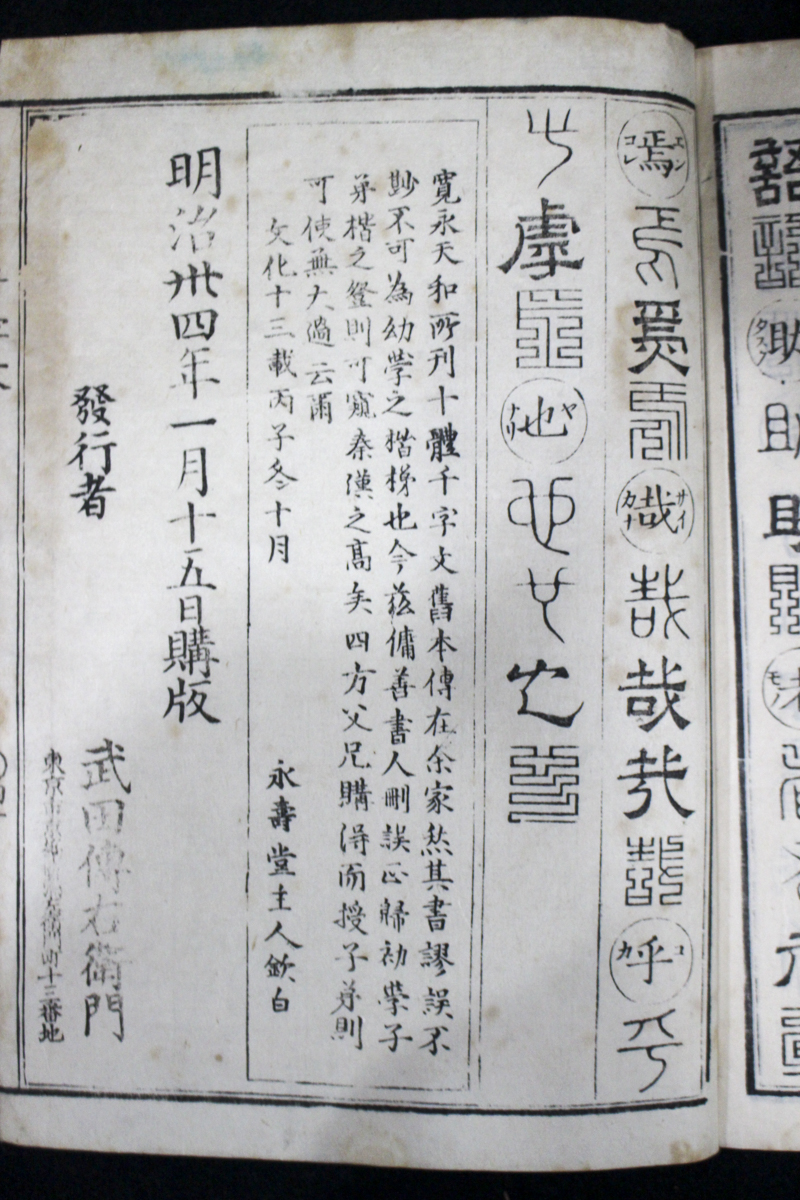 語
助
助
助
者
焉 エン コレ 焉 焉 焉 哉 サイ カナ 哉 哉 哉 哉 呼 コ カ 乎
乎 虖 乎 也 ヤ ナリ 也 也 也 也
寛永天和所刊十體千字文舊本傳在余家然其書謬誤不
尠不可為幼学之楷梯也今茲傭善書人刪誤正歸初学子
弟楷之鐙則可窺秦漢之髙矣四方父兄購得而授子弟則
可使無大過云爾
文化十三載丙子冬十月
永壽堂主人欽白
明治卅四年一月十五日購版
發行者
武田傳右衛門
東京市
町十三番地